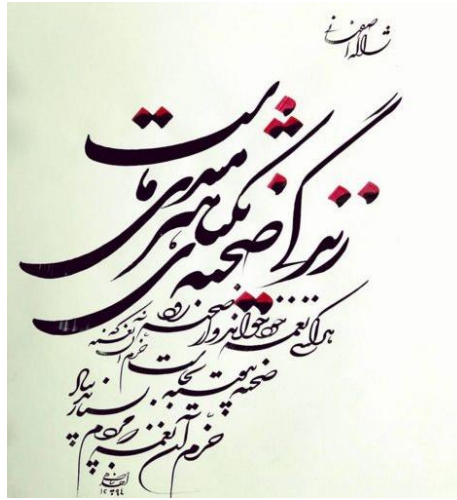 ژاله اصفهانی
زندگی صحنه یکتای هنرمندی ماست
هر کسی نغمه خود خواند و از صحنه رود
صحنه پیوسته بجاست
خرم آن نغمه که مردم بسپارند بیاد